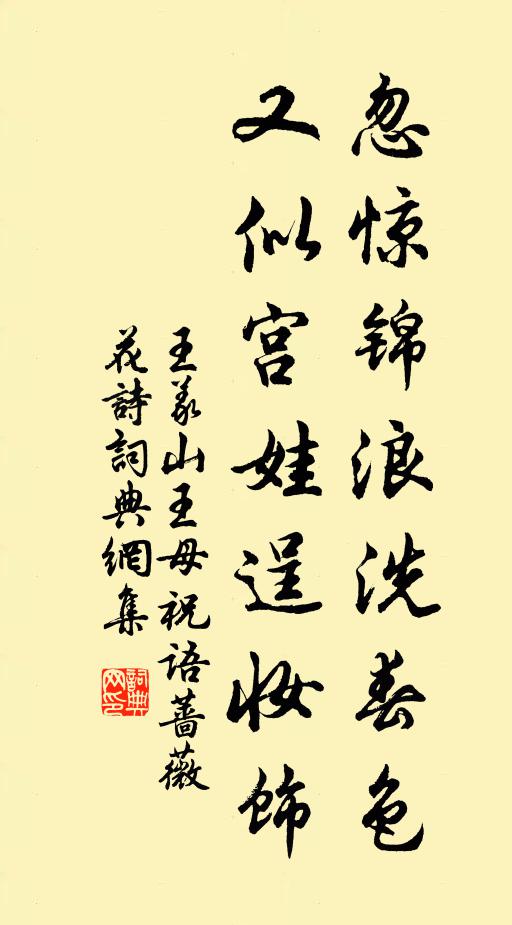 忽惊锦浪洗春色
又似宫娃逞妆饰
王義山王母祝语蔷薇
花詩詞典網集
詞典网印